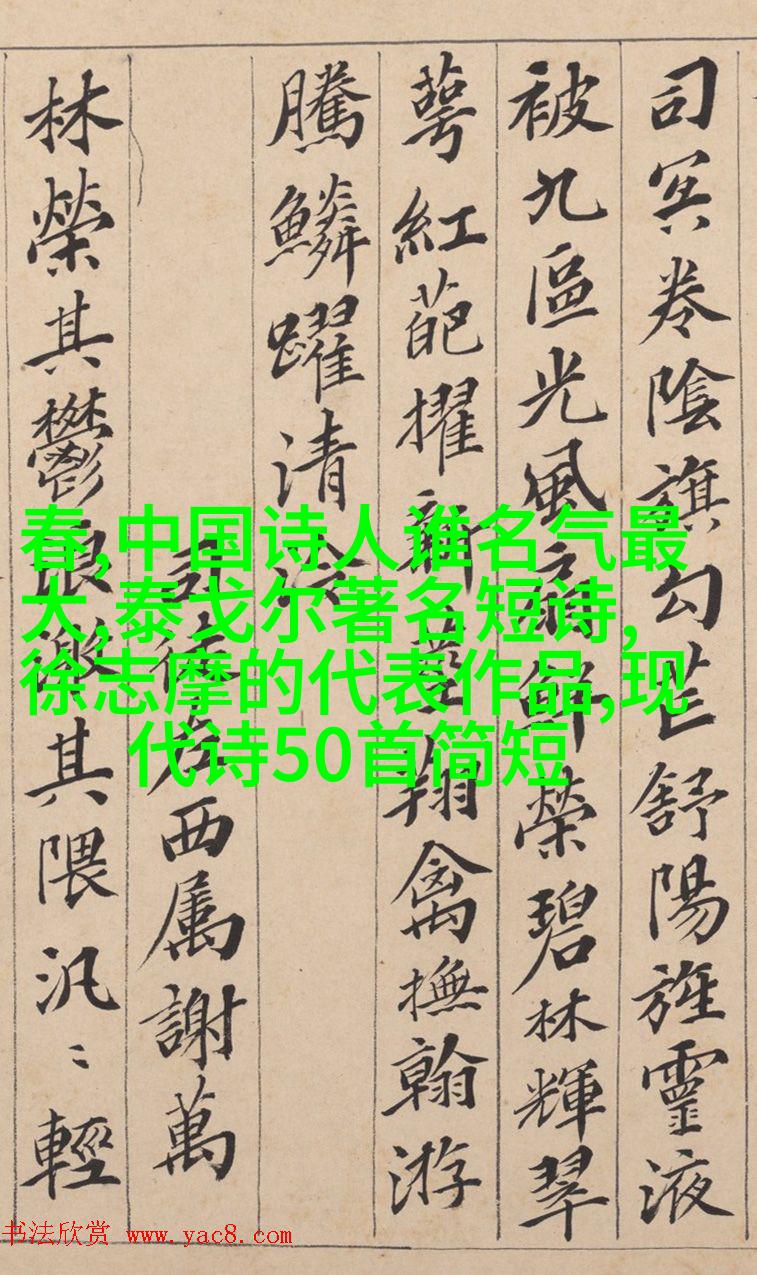 司冥卷陰旗勾芒舒陽旌靈液
被九區光風扇鮮榮碧林輝翠
萼紅葩擢新莖翔禽撫翰游
騰鱗躍清泠
司徒左西属謝萬
林榮其鬱浪激其隈汎〻輕
春,中国诗人谁名气最
大,泰戈尔著名短诗,
徐志摩的代表作品,现
代诗50首简短
书法欣赏 www.yac8.com